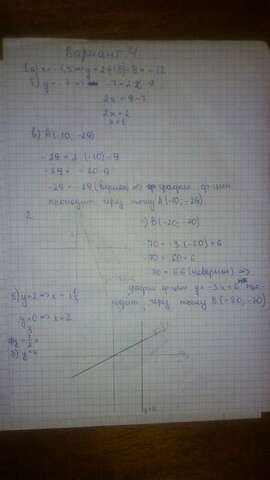 Вариант 4
1.а) x = -1,5 => y = 2·(-1,5) - 9 = -12
б) y = -7 => -7 = 2x - 9
2x = 9 - 7
2x = 2
x = 1
в) A(-10; -29)
-29 = 2·(-10) - 9
-29 = -20 - 9
-29 = -29 (верно) => график ф-ции
проходит через точку A(-10; -29)
2.
в) B(-20; -70)
-70 = -3·(-20) + 6
-70 = 60 + 6
70 = 66 (неверно) =>
график ф-ции y = -3x + 6 не
б) y = 2 => x = 1 1/3
ходит, через точку B(-20, -70)
y = 0 => x = 2
3